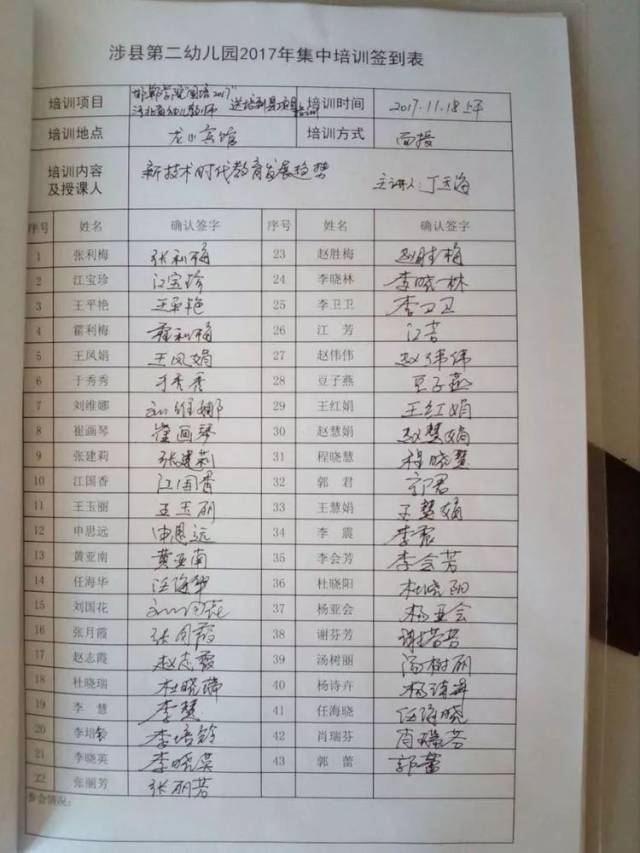 涉县第二幼儿园2017年集中培训签到表
培训项目 邯郸学院国培2017河北省幼儿教师送培到县项目培训 培训时间 2017.11.18上午
培训地点 龙山宾馆 培训方式 面授
培训内容及授课人 新技术时代教育发展趋势 主讲人:丁玉海
序号 姓名 确认签字 序号 姓名 确认签字
1 张利梅 张利梅 23 赵胜梅 赵胜梅
2 江宝珍 江宝珍 24 李晓林 李晓林
3 王平艳 王平艳 25 李卫卫 李卫卫
4 霍利梅 霍利梅 26 江芳 江芳
5 王凤娟 王凤娟 27 赵伟伟 赵伟伟
6 于秀秀 于秀秀 28 豆子燕 豆子燕
7 刘维娜 刘维娜 29 王红娟 王红娟
8 崔画琴 崔画琴 30 赵慧娟 赵慧娟
9 张建莉 张建莉 31 程晓慧 程晓慧
10 江国香 江国香 32 郭君 郭君
11 王玉丽 王玉丽 33 王慧娟 王慧娟
12 申思远 申思远 34 李震 李震
13 黄亚南 黄亚南 35 李会芳 李会芳
14 任海华 任海华 36 杜晓阳 杜晓阳
15 刘国花 刘国花 37 杨亚会 杨亚会
16 张月霞 张月霞 38 谢芬芳 谢芬芳
17 赵志霞 赵志霞 39 汤树丽 汤树丽
18 杜晓瑞 杜晓瑞 40 杨诗卉 杨诗卉
19 李慧 李慧 41 任海晓 任海晓
20 李培铃 李培铃 42 肖瑞芬 肖瑞芬
21 李晓英 李晓英 43 郭蕾 郭蕾
22 张丽芳 张丽芳
参会情况: